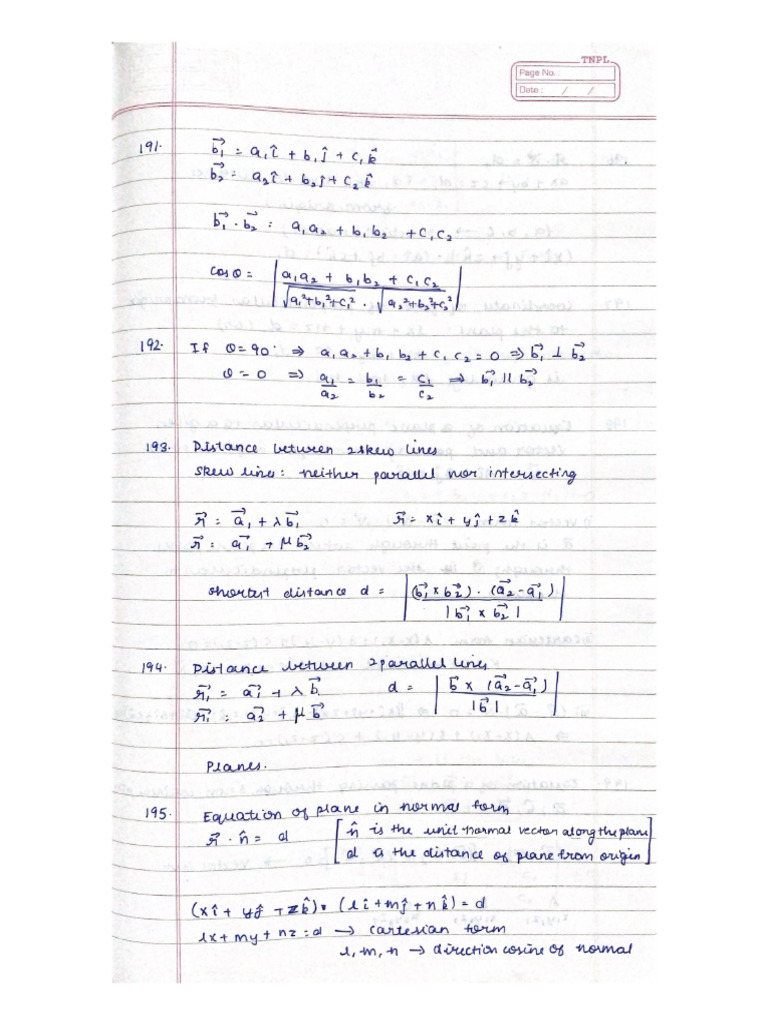 TNPL
Page No. :
Date : / /
191. b₁⃗ = a₁î + b₁ĵ + c₁k̂
b₂⃗ = a₂î + b₂ĵ + c₂k̂
b₁⃗ . b₂⃗ = a₁a₂ + b₁b₂ + c₁c₂
cosθ = | a₁a₂ + b₁b₂ + c₁c₂ / √a₁²+b₁²+c₁² . √a₂²+b₂²+c₂² |
192. If θ = 90° ⇒ a₁a₂ + b₁b₂ + c₁c₂ = 0 ⇒ b₁⃗ ⊥ b₂⃗
θ = 0 ⇒ a₁/a₂ = b₁/b₂ = c₁/c₂ ⇒ b₁⃗ || b₂⃗
193. Distance between 2 skew lines
Skew lines : neither parallel nor intersecting
r⃗ = a₁⃗ + λb₁⃗ r⃗ = xî + yĵ + zk̂
r⃗ = a₁⃗ + μb₂⃗
shortest distance d = | (b₁⃗ × b₂⃗) . (a₂⃗ - a₁⃗) / |b₁⃗ × b₂⃗| |
194. Distance between 2 parallel lines
r₁⃗ = a₁⃗ + λ b⃗ d = | b⃗ × (a₂⃗ - a₁⃗) / |b⃗| |
r₁⃗ = a₂⃗ + μ b⃗
Planes.
195. Equation of plane in normal form
r⃗ . n̂ = d [ n̂ is the unit normal vector along the plane
d is the distance of plane from origin ]
(xî + yĵ + zk̂) . (lî + mĵ + nk̂) = d
lx + my + nz = d → cartesian form
l, m, n → direction cosine of normal